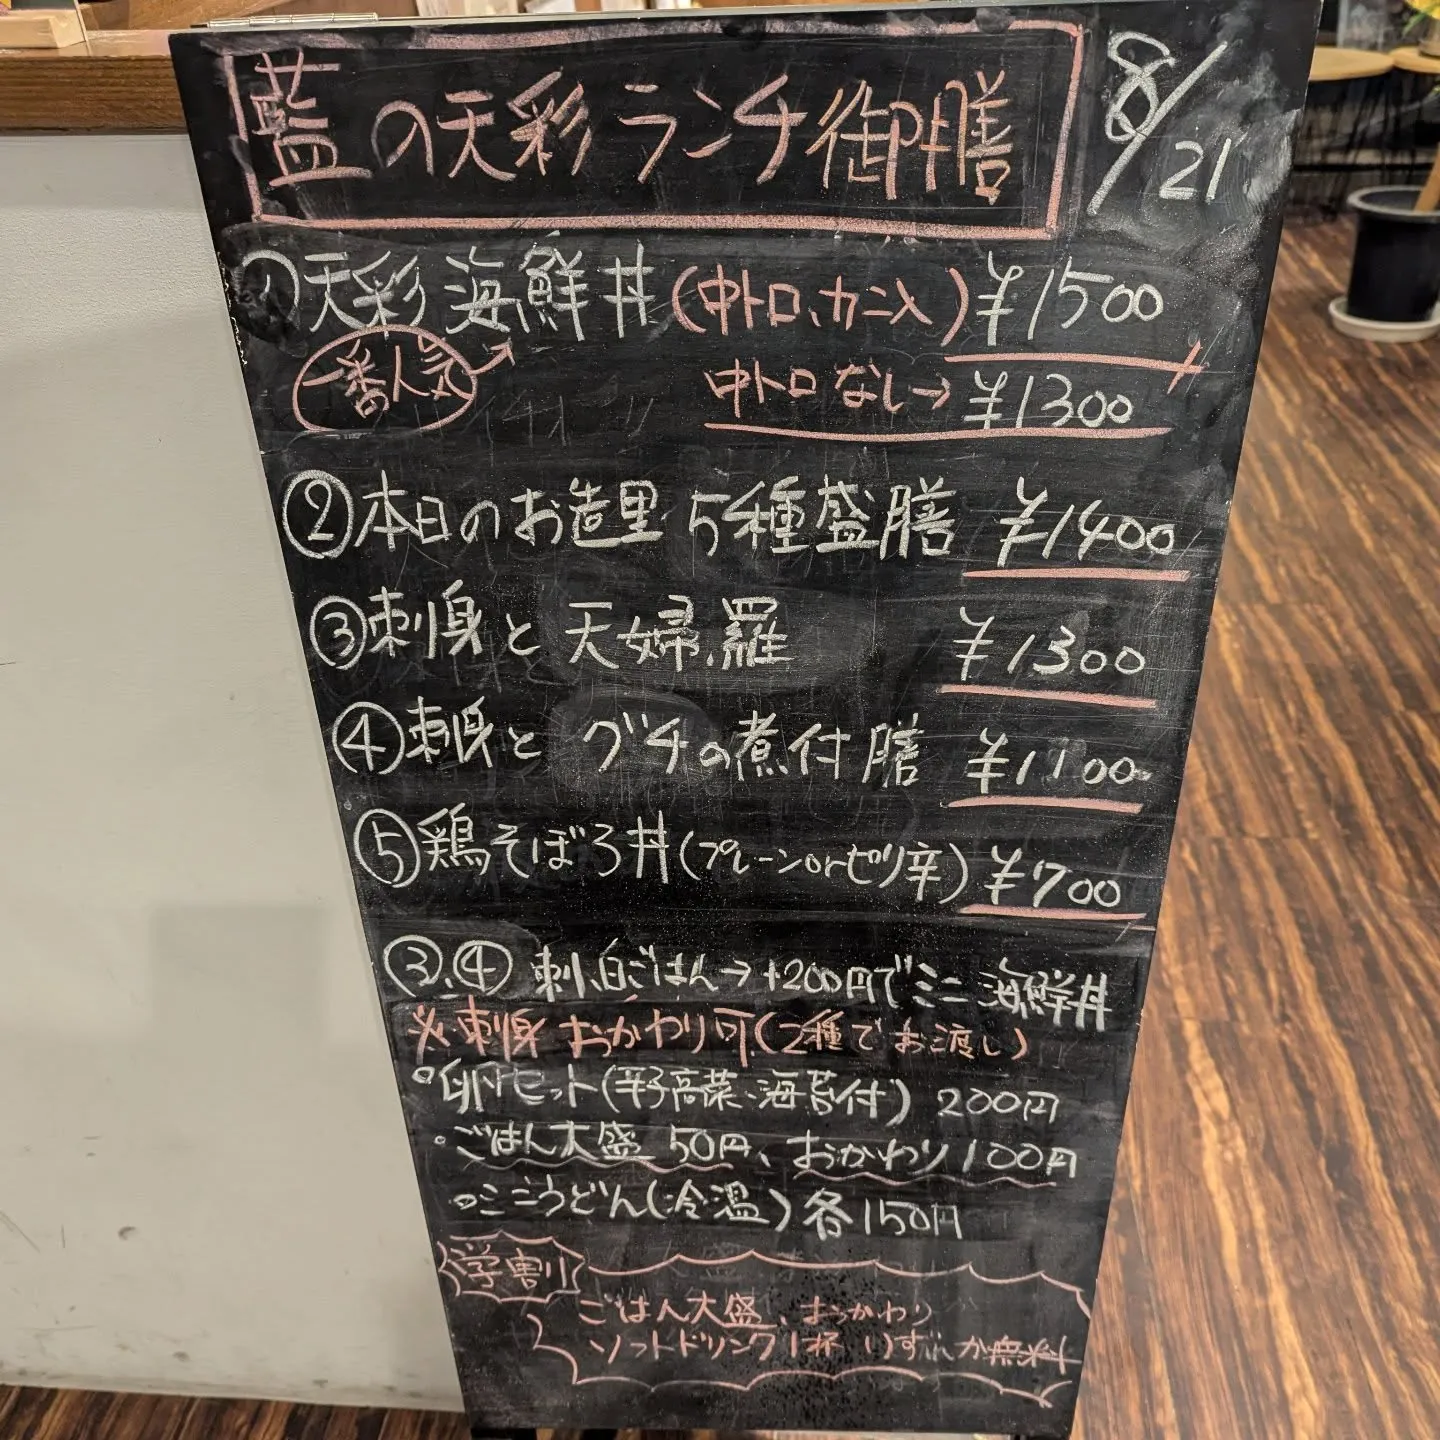 藍の天彩ランチ御膳 8/21
①天彩海鮮丼(中トロ、カニ入)¥1500
一番人気 中トロなし→¥1300
②本日のお造里5種盛膳 ¥1400
③刺身と天婦羅 ¥1300
④刺身とグチの煮付膳 ¥1100
⑤鶏そぼろ丼(プレーンorピリ辛)¥700
③.④ 刺、白ごはん→+200円でミニ海鮮丼
※刺身おかわり可(2種でお渡し)
○卵セット(辛子高菜、海苔付)200円
○ごはん大盛50円、おかわり100円
○ミニうどん(冷温)各150円
学割
ごはん大盛、おかわり
ソフトドリンク1杯 いずれか無料